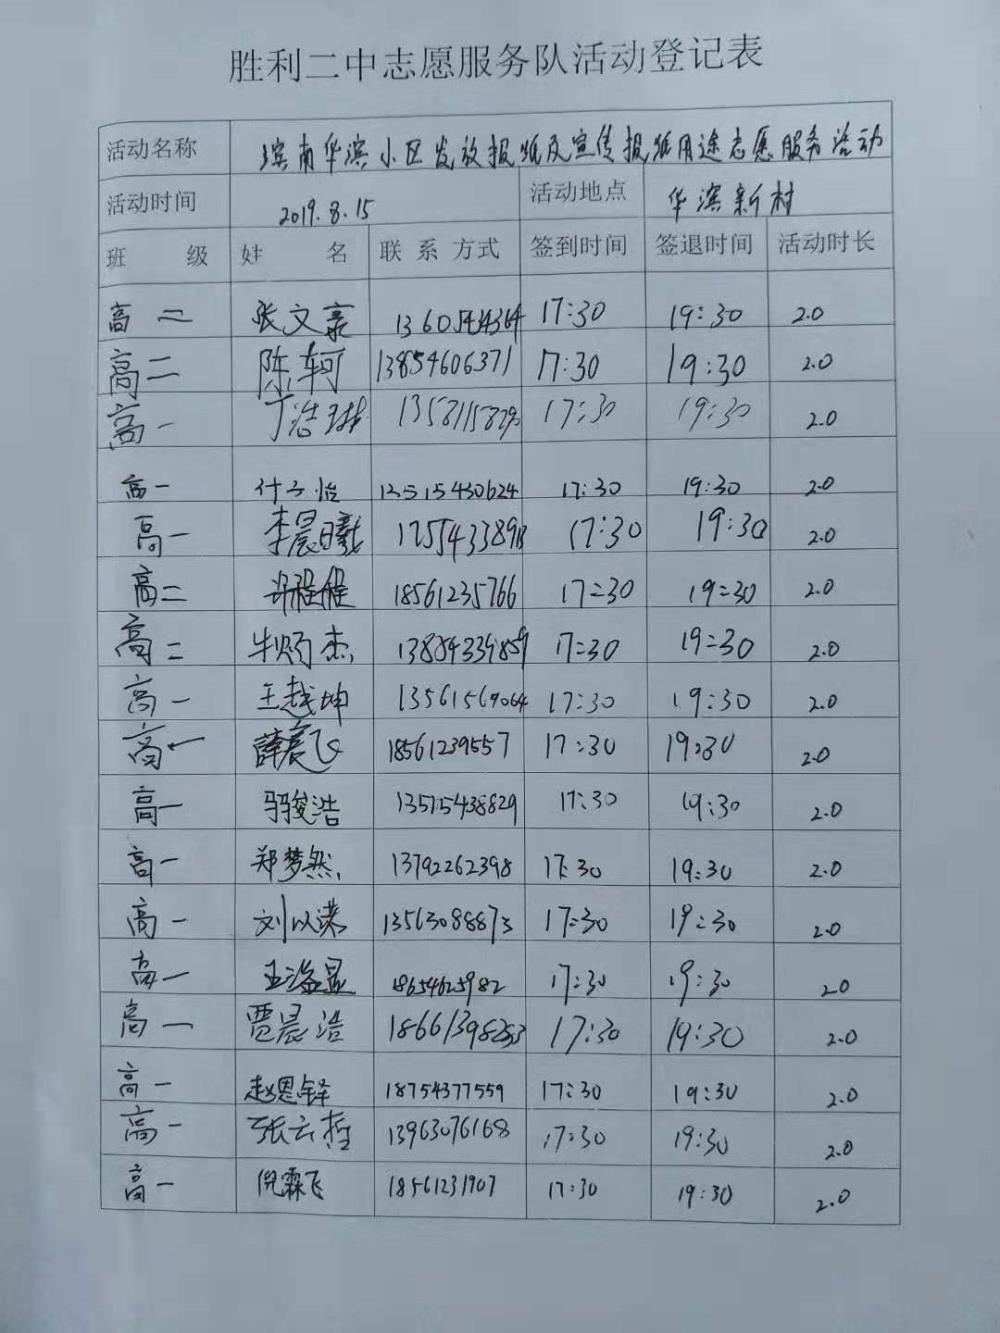 胜利二中志愿服务队活动登记表
活动名称 滨南华滨小区发放报纸及宣传报纸用途志愿服务活动
活动时间 2019.8.15 活动地点 华滨新村
班 级 姓 名 联系方式 签到时间 签退时间 活动时长
高二 张文豪 17:30 19:30 2.0
高二 陈轲 13854606371 17:30 19:30 2.0
高一 丁浩琳 17:30 19:30 2.0
高一 付子怡 13515430624 17:30 19:30 2.0
高一 李晨曦 17:30 19:30 2.0
高二 许程程 18561235766 17:30 19:30 2.0
高二 牛 杰 17:30 19:30 2.0
高一 王越坤 13561569064 17:30 19:30 2.0
高一 薛宸飞 18561239557 17:30 19:30 2.0
高一 骏浩 13515438829 17:30 19:30 2.0
高一 郑梦然 13792262398 17:30 19:30 2.0
高一 刘以 13563088873 17:30 19:30 2.0
高一 王 18654625982 17:30 19:30 2.0
高一 贾晨浩 18661398283 17:30 19:30 2.0
高一 赵恩铎 18754377559 17:30 19:30 2.0
高一 张云哲 13963076168 17:30 19:30 2.0
高一 倪霖飞 18561231907 17:30 19:30 2.0